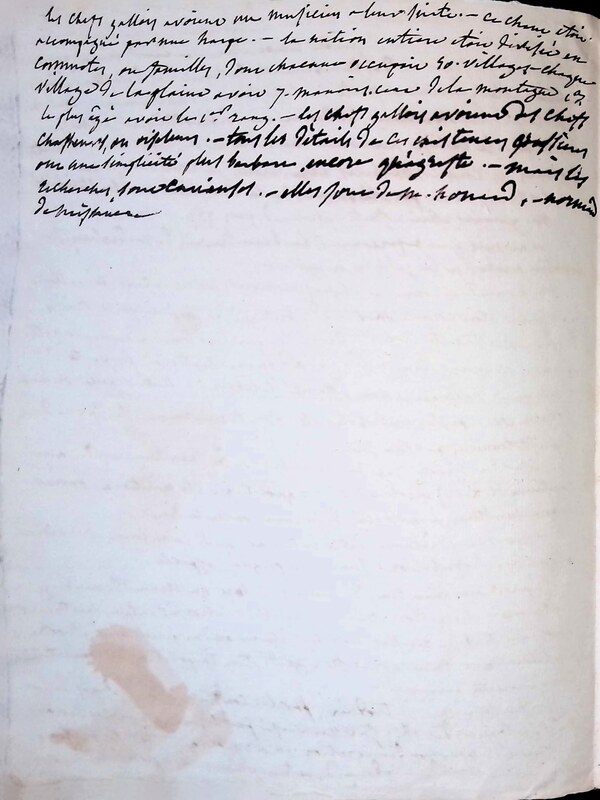 les chefs gallois avoient un musicien a leur suite. - ce chant etoit
accompagné par une harpe. - la nation entiere etoit divisée en
commotes, ou familles, dont chacune occupoit 50. villages - chaque
village de la plaine avoit 7. manoirs, ceux de la montagne 13
le plus âgé avoit le 1er rang. - les chefs gallois avoient des chefs
chasseurs, ou - tous les détails de ces existences grossieres
ont une simplicité plus barbare, encore qu'agreste. - mais les
recherches, sont curieuses. - elles sont de mr. howard, - normand
de naissance